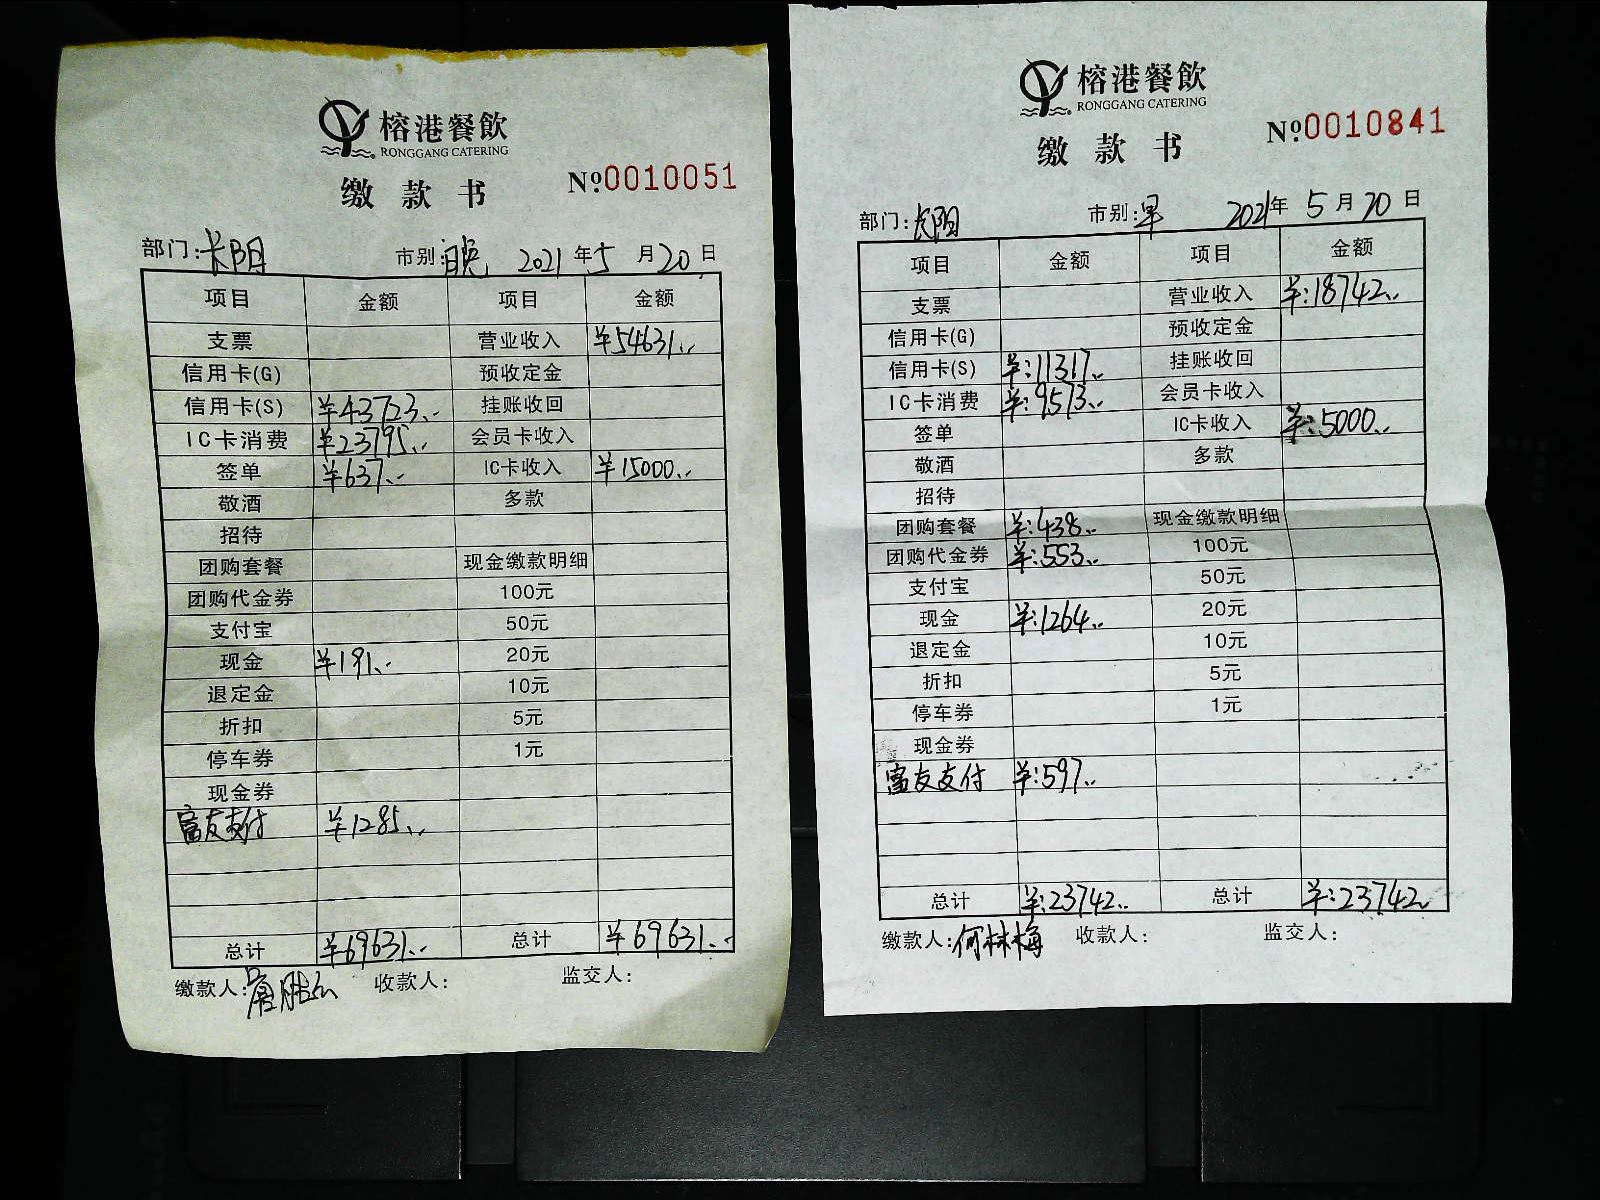 榕港餐飲
RONGGANG CATERING
缴款书
№0010051
部门:长阳 市别:晚 2021年5月20日
项目 金额 项目 金额
支票 营业收入 ¥54631..
信用卡(G) 预收定金
信用卡(S) ¥43723.. 挂账收回
IC卡消费 ¥23795.. 会员卡收入
签单 ¥637.. IC卡收入 ¥15000..
敬酒 多款
招待
团购套餐 现金缴款明细
团购代金券 100元
支付宝 50元
现金 ¥191.. 20元
退定金 10元
折扣 5元
停车券 1元
现金券
富友支付 ¥1285..
总计 ¥69631.. 总计 ¥69631..
缴款人: 收款人: 监交人:
榕港餐飲
RONGGANG CATERING
缴款书
№0010841
部门:长阳 市别:早 2021年5月20日
项目 金额 项目 金额
支票 营业收入 ¥:18742..
信用卡(G) 预收定金
信用卡(S) ¥:11317.. 挂账收回
IC卡消费 ¥:9573.. 会员卡收入
签单 IC卡收入 ¥:5000..
敬酒 多款
招待
团购套餐 ¥:438.. 现金缴款明细
团购代金券 ¥:553.. 100元
支付宝 50元
现金 ¥:1264.. 20元
退定金 10元
折扣 5元
停车券 1元
现金券
富友支付 ¥:597..
总计 ¥:23742.. 总计 ¥:23742..
缴款人:何林梅 收款人: 监交人: